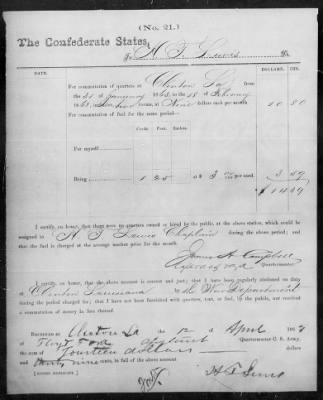 (No. 21.)
The Confederate States,
To H. T. Lewis Dr.
DATE. DOLLARS. CTS.
For commutation of quarters at Clinton La. from
the 21 of January 1863 to the 18 of February
1863, rooms, at Nine dollars each per month 10 80
For commutation of fuel for the same period—
Cords. Feet. Inches.
For myself
Being 1 25 at $ per cord 3 59
$ 14 39
I certify, on honor, that there were no quarters owned or hired by the public, at the above station, which could be
assigned to H. T. Lewis Chaplain during the above period; and
that the fuel is charged at the average market price for the month.
James H. Campbell
Quartermaster.
I certify, on honor, that the above account is correct and just; that I have been regularly stationed on duty
at Clinton Louisiana by the War Department
during the period charged for; that I have not been furnished with quarters, tent, or fuel, by the public, nor received
a commutation of money in lieu thereof.
RECEIVED at Clinton La the 12 of April 1863 of
Quartermaster C. S. Army,
the sum of Fourteen dollars
and thirty nine cents, in full of the above account.
[SIGNED DUPLICATE.] H T Lewis